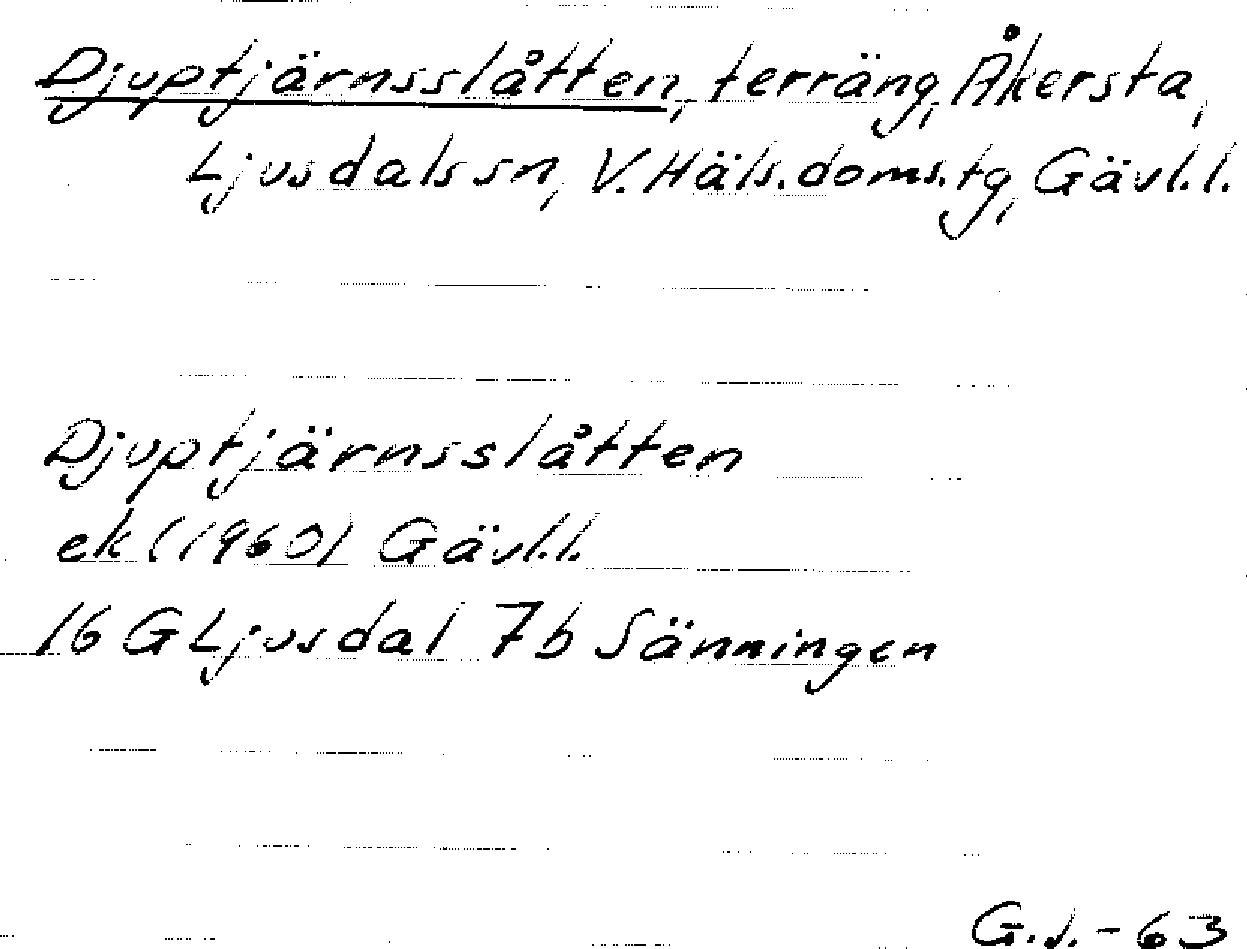 Djuptjärnsslåtten, terräng, Åkersta,
Ljusdals sn, V. Häls. doms. tg, Gävl. l.
Djuptjärnsslåtten
ek (1960) Gävl. l.
16 G Ljusdal 7b Sänningen
G. J. - 63